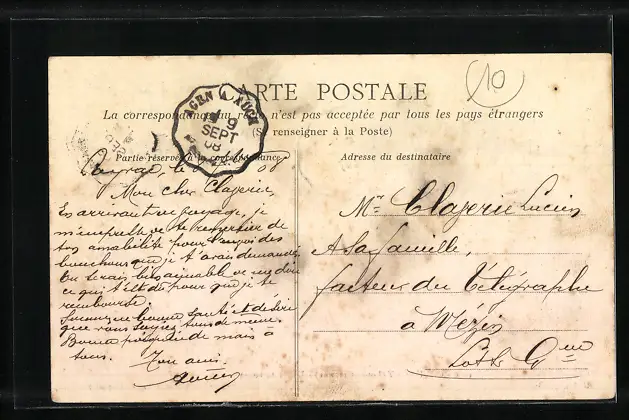 CARTE POSTALE
10
La correspondance au recto n'est pas acceptée par tous les pays étrangers
(Se renseigner à la Poste)
AGEN A AUCH
9
SEPT
08
Partie réservée à la correspondance
Adresse du destinataire
08
Mon cher Clazerie,
En arrivant de voyage, je
m'empresse de te remercier de
ton amabilité pour l'envoi des
bouchons que je t'avais demandés
Tu serais bien aimable de me dire
ce qui t'est dû pour que je te
rembourse.
bonne santé et désire
que vous soyez tous de même.
Bonne poignée de main à
tous.
Ton ami
Mr Clazerie Lucien
A sa famille,
facteur du Télégraphe
à Mézin
Lot & Gne